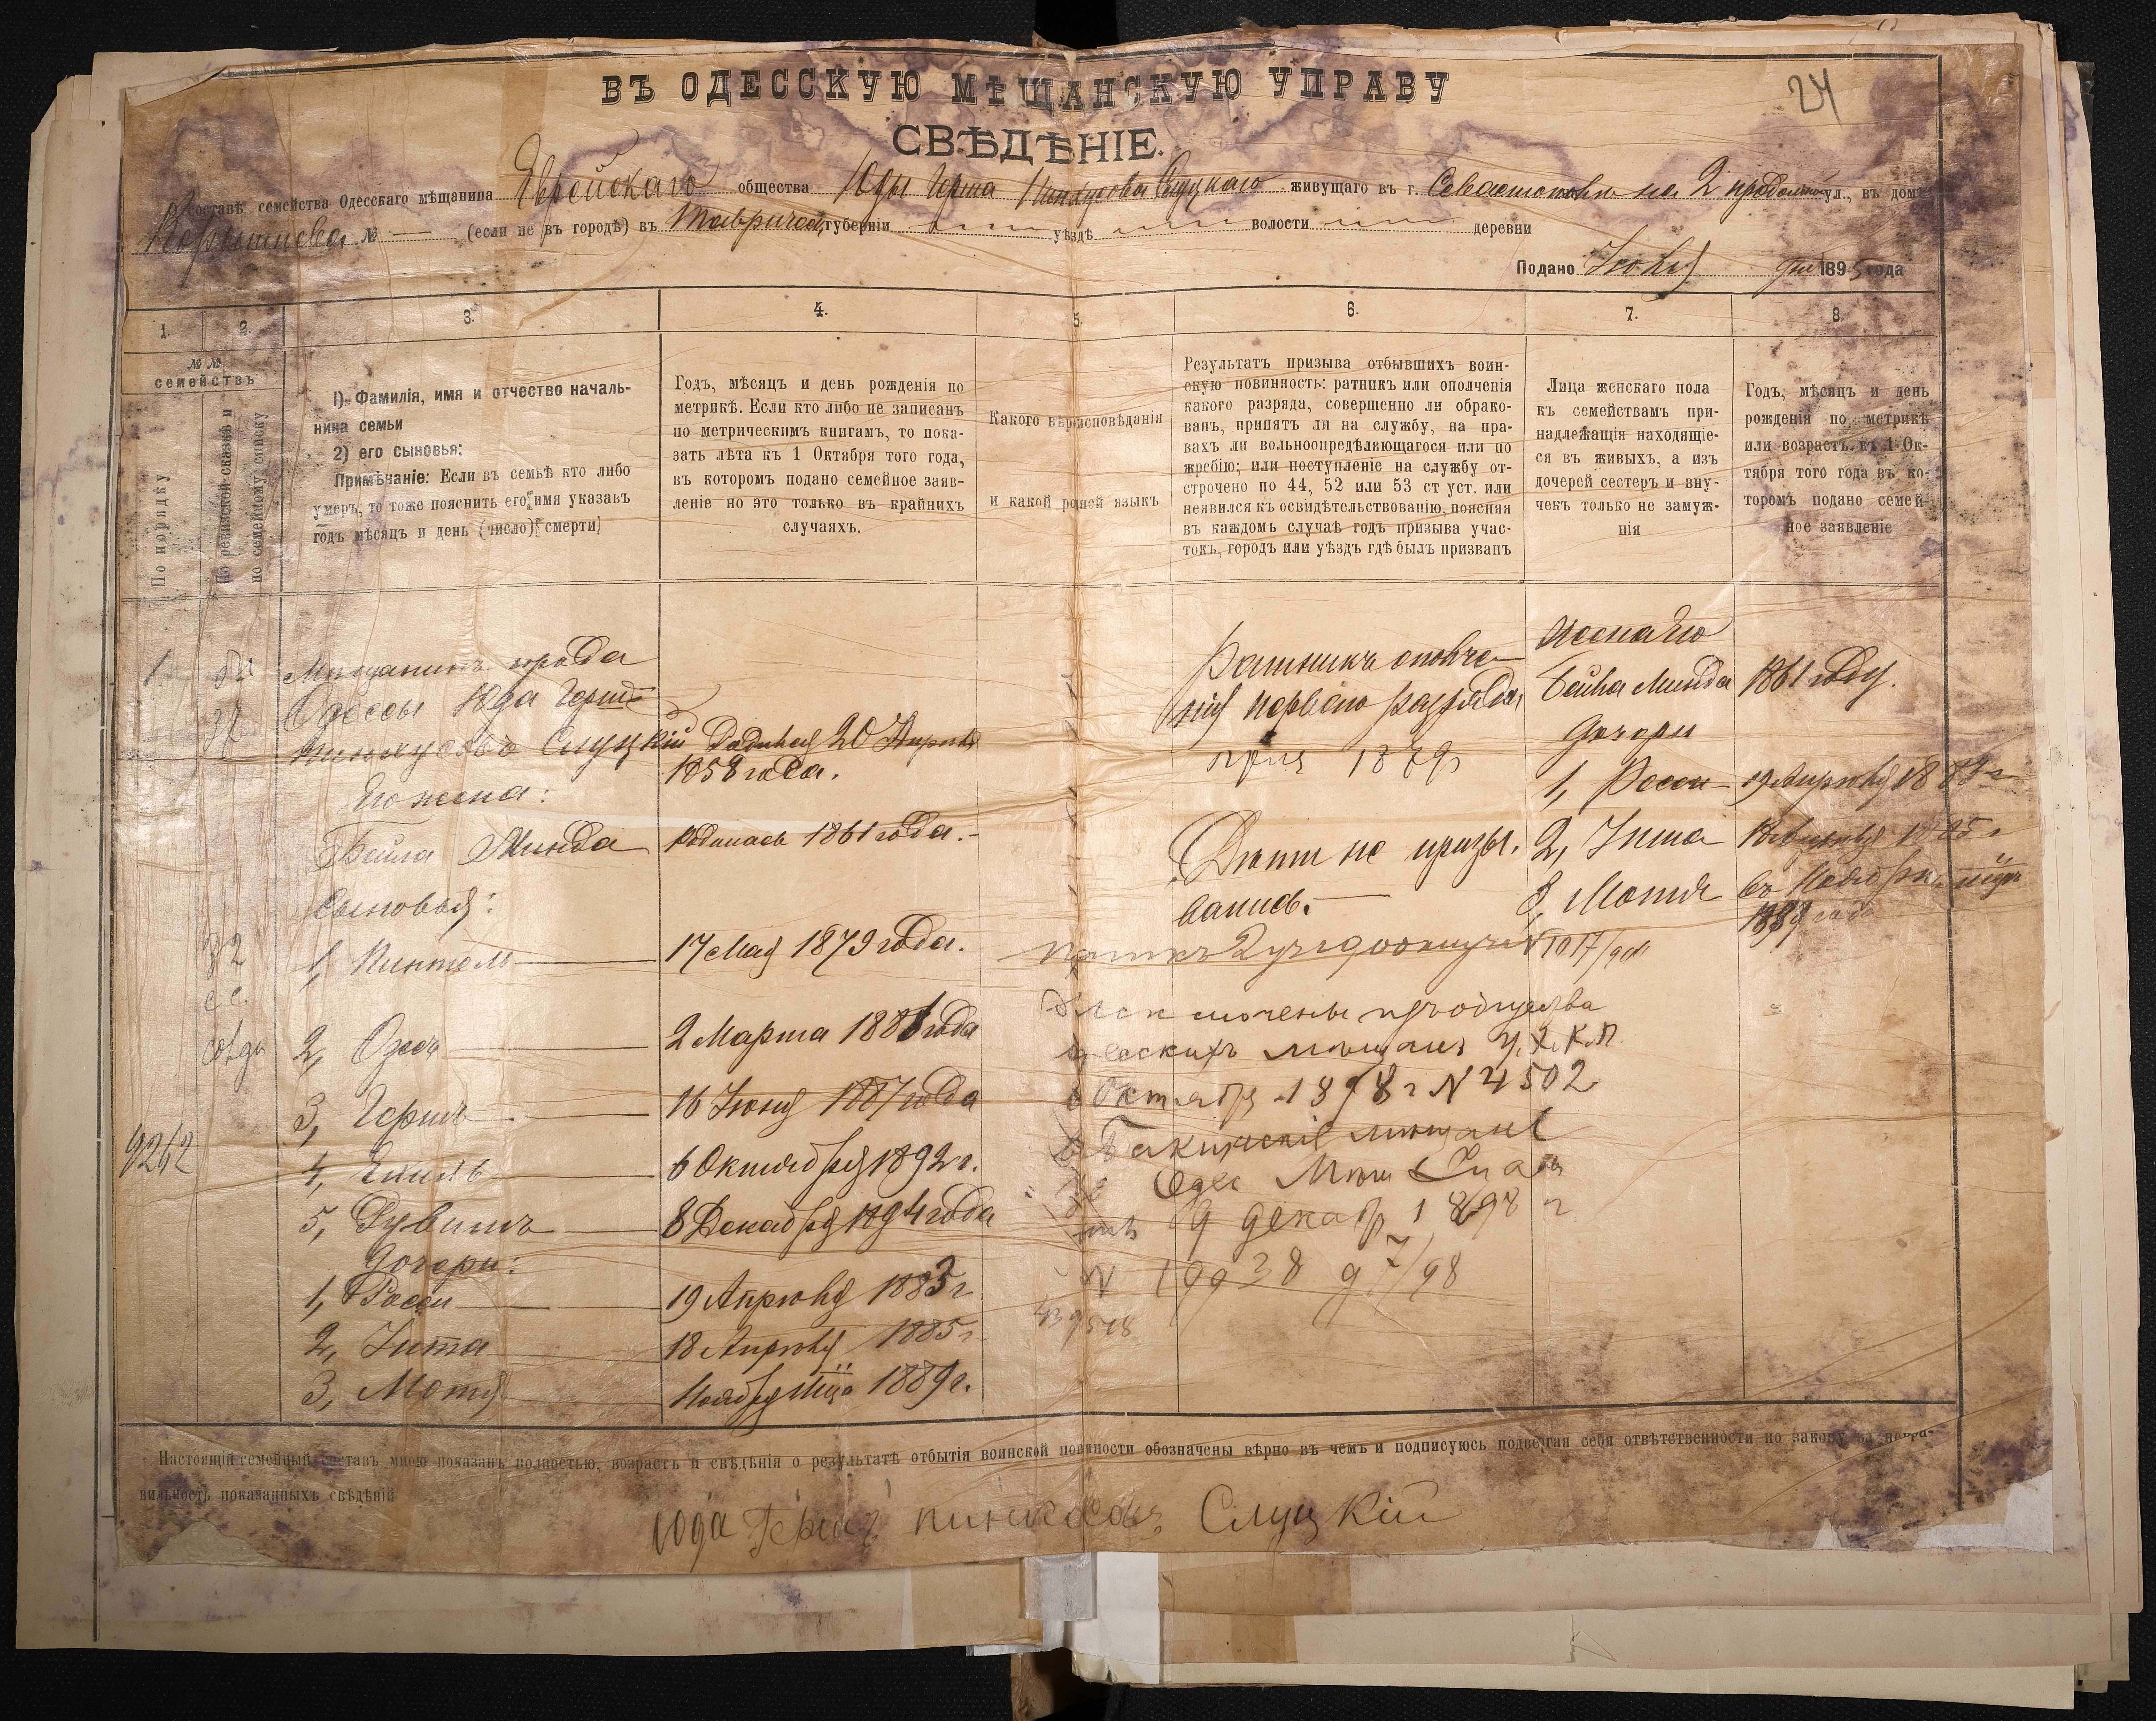 24
ВЪ ОДЕССКУЮ МѢЩАНСКУЮ УПРАВУ
СВѢДѢНІЕ.
составѣ семейства Одесскаго мѣщанина Еврейскаго общества Юды Герша Пинхусова Слуцкаго живущаго въ г. Севастополѣ на 2 продольной ул., въ домѣ
№ — (если не въ городѣ) въ Таврической губерніи уѣздѣ волости деревни
Подано Іюня дня 1895 года
1. 2. 3. 4. 5. 6. 7. 8.
№ №
семействъ
По порядку
По ревизской сказкѣ и
по семейному списку
1) Фамилія, имя и отчество началь-
ника семьи
2) его сыновья:
Примѣчаніе: Если въ семьѣ кто либо
умеръ, то тоже пояснить его имя указавъ
годъ мѣсяцъ и день (число) смерти)
Годъ, мѣсяцъ и день рожденія по
метрикѣ. Если кто либо не записанъ
по метрическимъ книгамъ, то пока-
зать лѣта къ 1 Октября того года,
въ которомъ подано семейное заяв-
леніе но это только въ крайнихъ
случаяхъ.
Какого вѣрисповѣданія
и какой родней языкъ
Результатъ призыва отбывшихъ воин-
скую повинность: ратникъ или ополченія
какого разряда, совершенно ли обрако-
ванъ, принятъ ли на службу, на пра-
вахъ ли вольноопредѣляющагося или по
жребію; или поступленіе на службу от-
строчено по 44, 52 или 53 ст уст. или
неявился къ освидѣтельствованію, поясняя
въ каждомъ случаѣ годъ призыва учас-
токъ, городъ или уѣздъ гдѣ былъ призванъ
Лица женскаго пола
къ семействамъ при-
надлежащія находящіе-
ся въ живыхъ, а изъ
дочерей сестеръ и вну-
чекъ только не замуж-
нія
Годъ, мѣсяцъ и день
рожденія по метрикѣ
или возрастъ къ 1 Ок-
тября того года въ ко-
торомъ подано семей-
ное заявленіе
1
Мѣщанинъ города
Одессы Юда Гершъ
Пинхусовъ Слуцкій Родился 20 Апрѣля
1858 года.
Ратникъ ополче-
нія перваго разряда
1879
жена его
Бейла Минда 1861 году.
Его жена:
Бейла Минда родилась 1861 года.-
Дѣти не призы-
вались.-
дочери
1, Росси 19 Апрѣля 1883 г
2, Зита 18 Апрѣля 1885 г
3, Мотя въ Ноябрѣ мѣсяцѣ
1889 года
Сыновья:
1, Пинтель 17 Мая 1879 года.
32
с с.
2, 2 Марта 1881 года
3, Гершъ 16 Іюня 1887 года
9262
4, Хаимъ 6 Октября 1892 г.
5, Рувимъ 8 Декабря 1894 года
N 1017/98
исключены изъ общества
одесскихъ мѣщанъ У. Х. К. П.
Октября 1898 г N 4502
въ Бакинскіе мѣщане
Одес Мѣщ
9 декабр 1898 г
N 19938 9 7/98
Дочери:
1, Росси 19 Апрѣля 1883 г
2, Зита 18 Апрѣля 1885 г.
3, Мотя Ноября мца 1889 г.
Настоящій семейный составъ мною показанъ полностью, возрастъ и свѣдѣнія о результатѣ отбытія воинской повиности обозначены вѣрно въ чемъ и подписуюсь подвергая себя отвѣтственности по закону за непра-
вильность показанныхъ свѣдѣній
Юда Гершъ Пинхосовъ Слуцкій